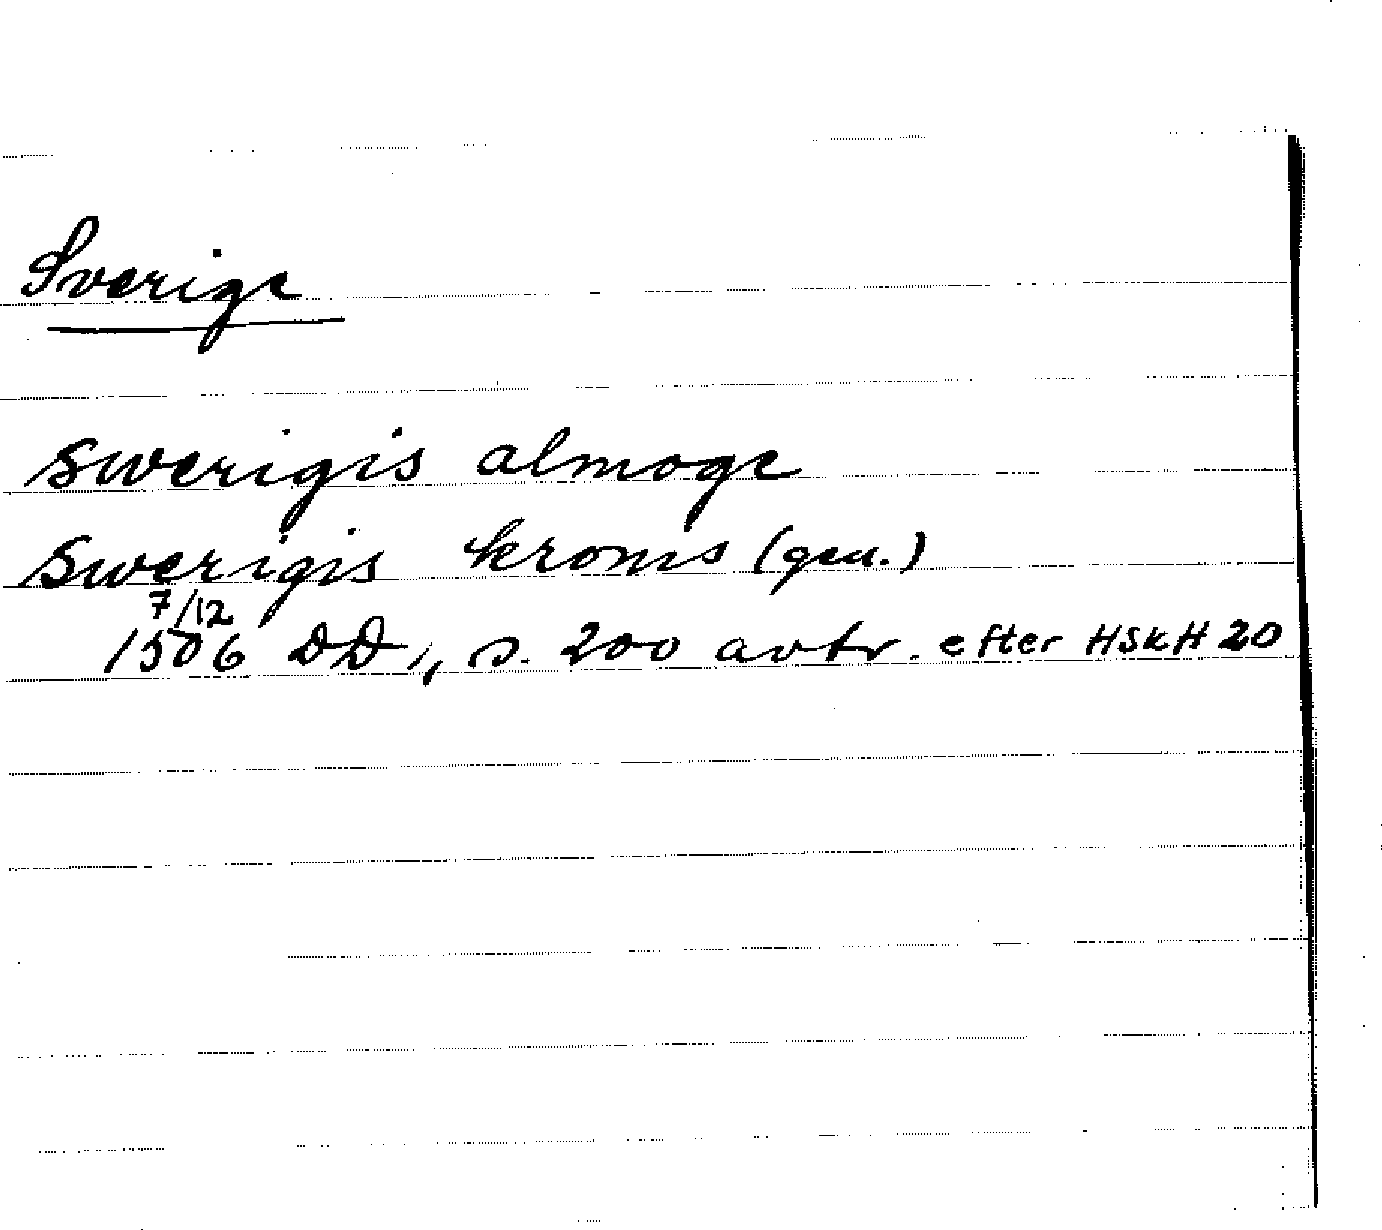 Sverige
swerigis almoge
swerigis kroms (gen.)
7/12
1506 DD, s. 200 avtr. efter HSkH 20